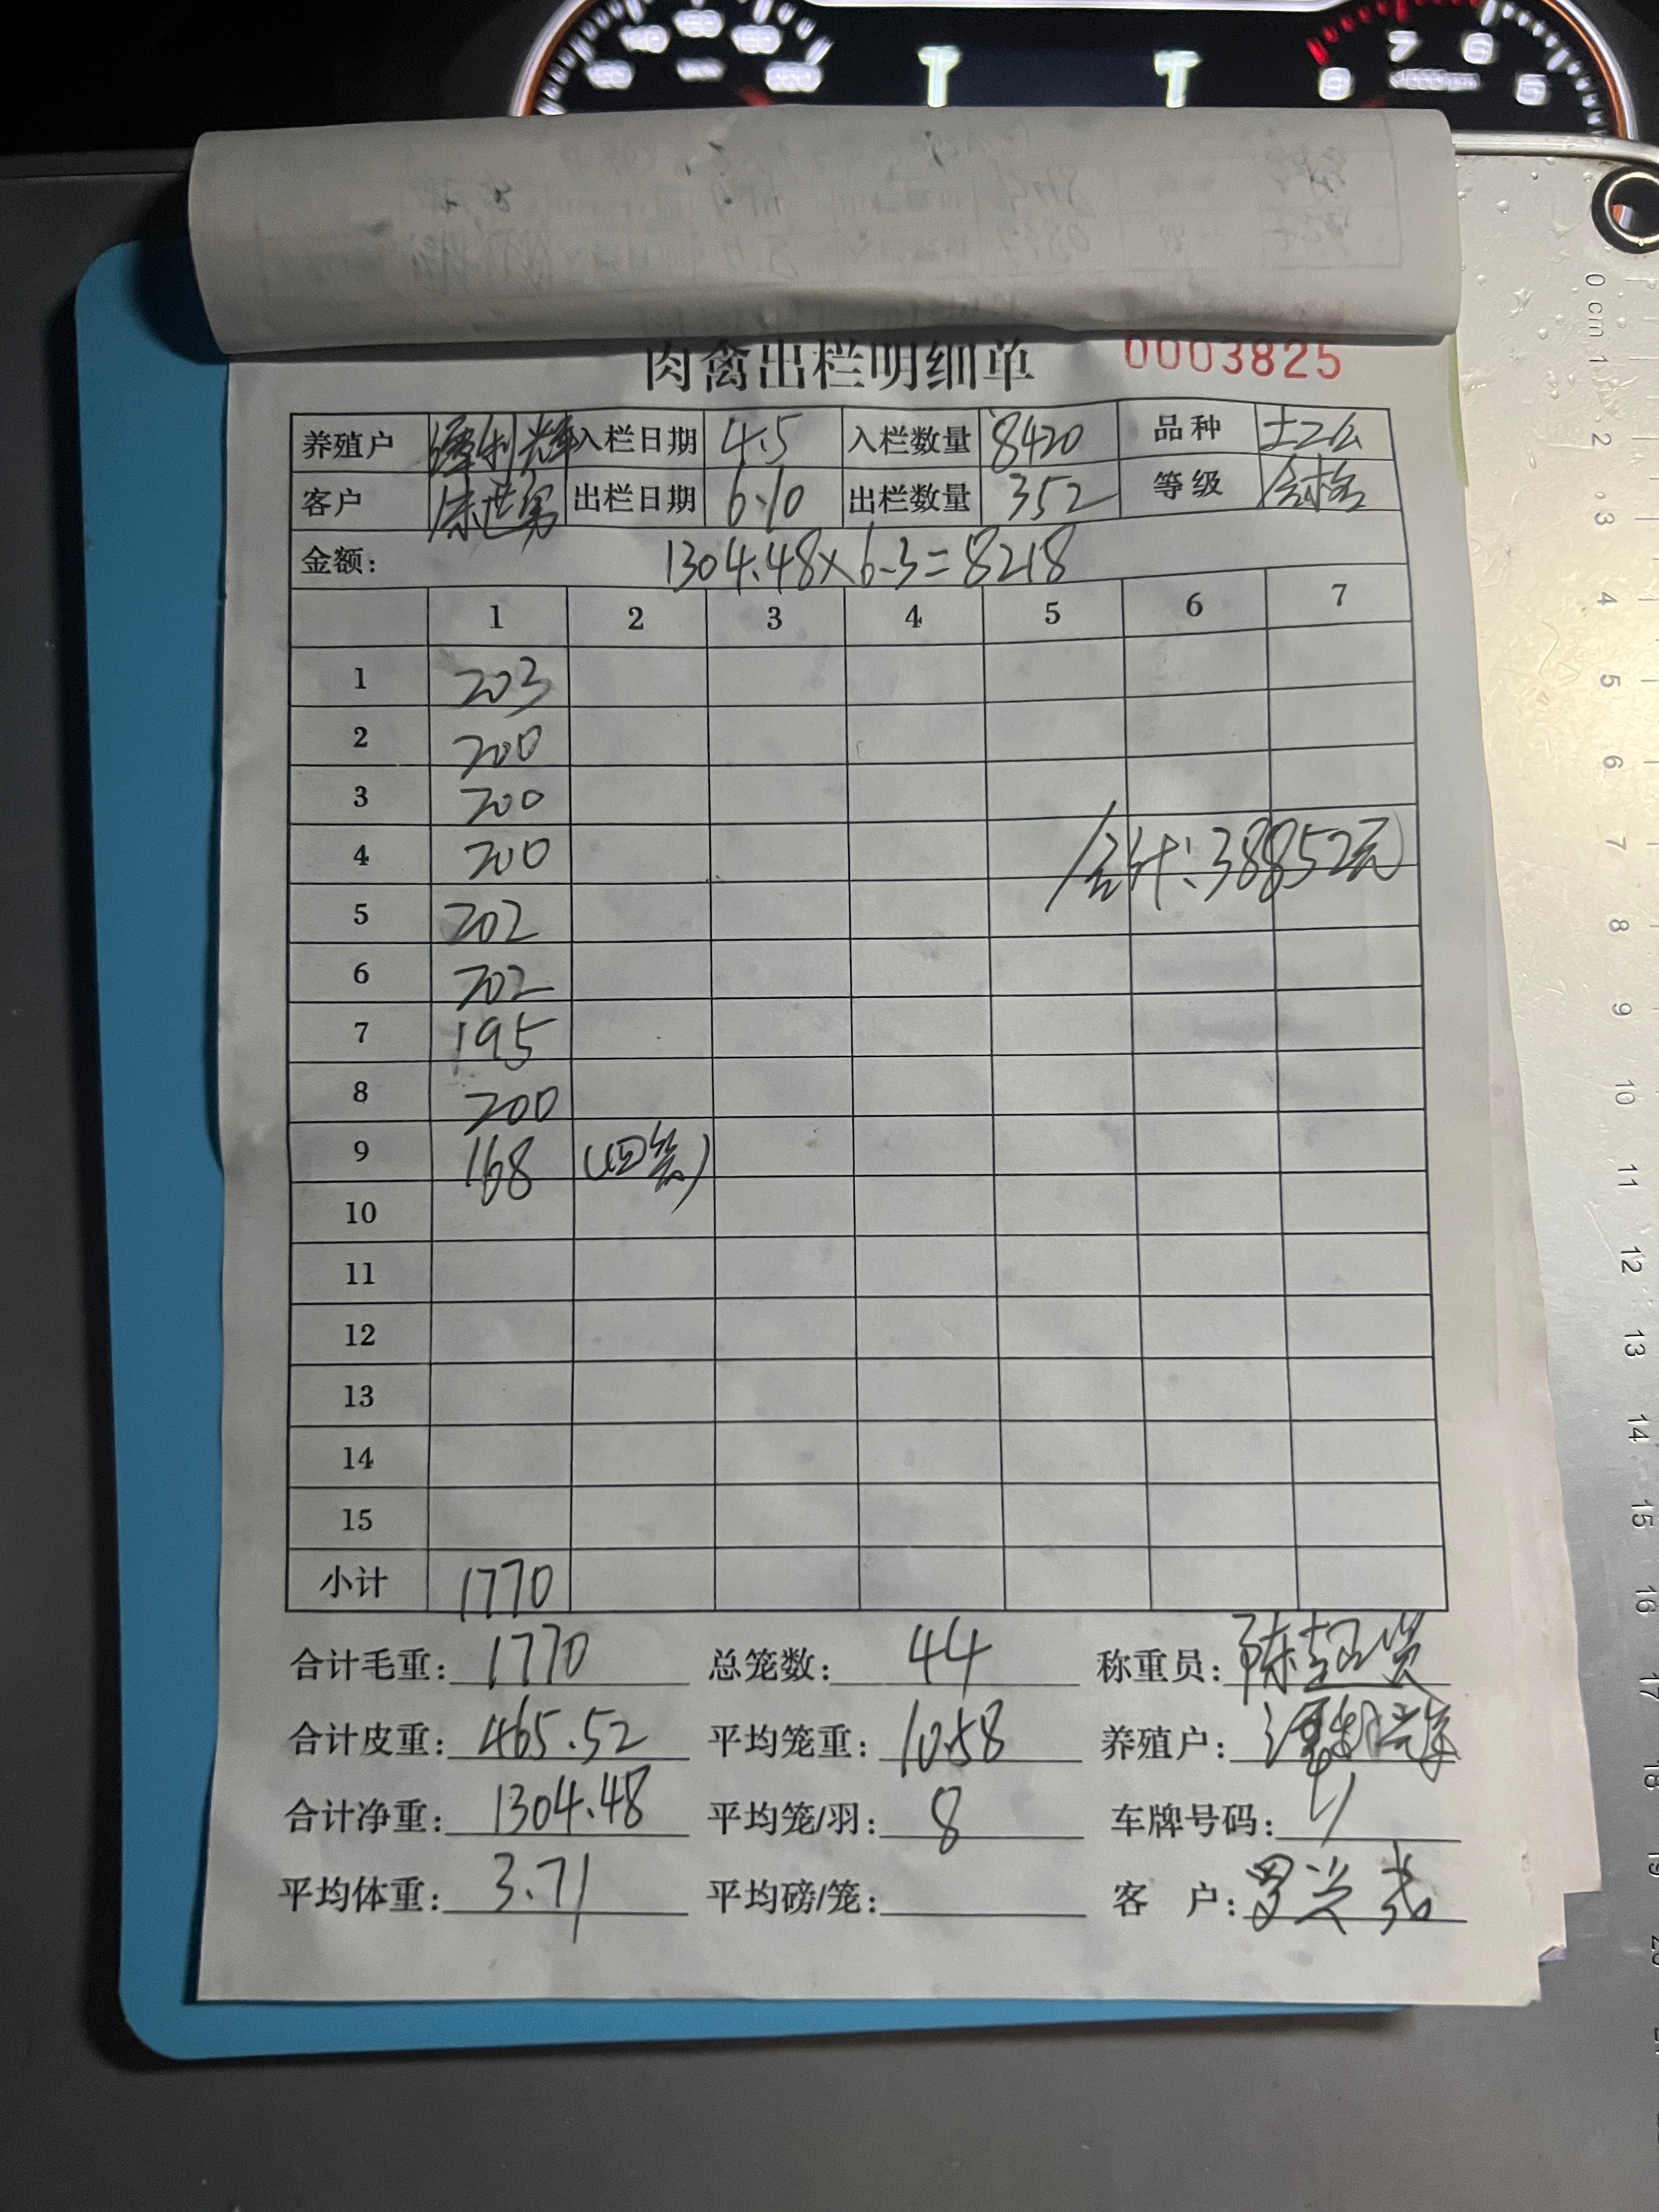 肉禽出栏明细单 0003825
养殖户 谭利辉 入栏日期 4.5 入栏数量 8420 品种 土2公
客户 出栏日期 6.10 出栏数量 352 等级
金额: 1304.48×6.3=8218
1 2 3 4 5 6 7
1 203
2 200
3 200
4 200 合计:38852元
5 202
6 202
7 195
8 200
9 168 (四笼)
10
11
12
13
14
15
小计 1770
合计毛重: 1770 总笼数: 44 称重员:
合计皮重: 465.52 平均笼重: 10.58 养殖户: 谭利辉
合计净重: 1304.48 平均笼/羽: 8 车牌号码:
平均体重: 3.71 平均磅/笼: 客 户:
0 cm 1 2 3 4 5 6 7 8 9 10 11 12 13 14 15 16 17 18 19